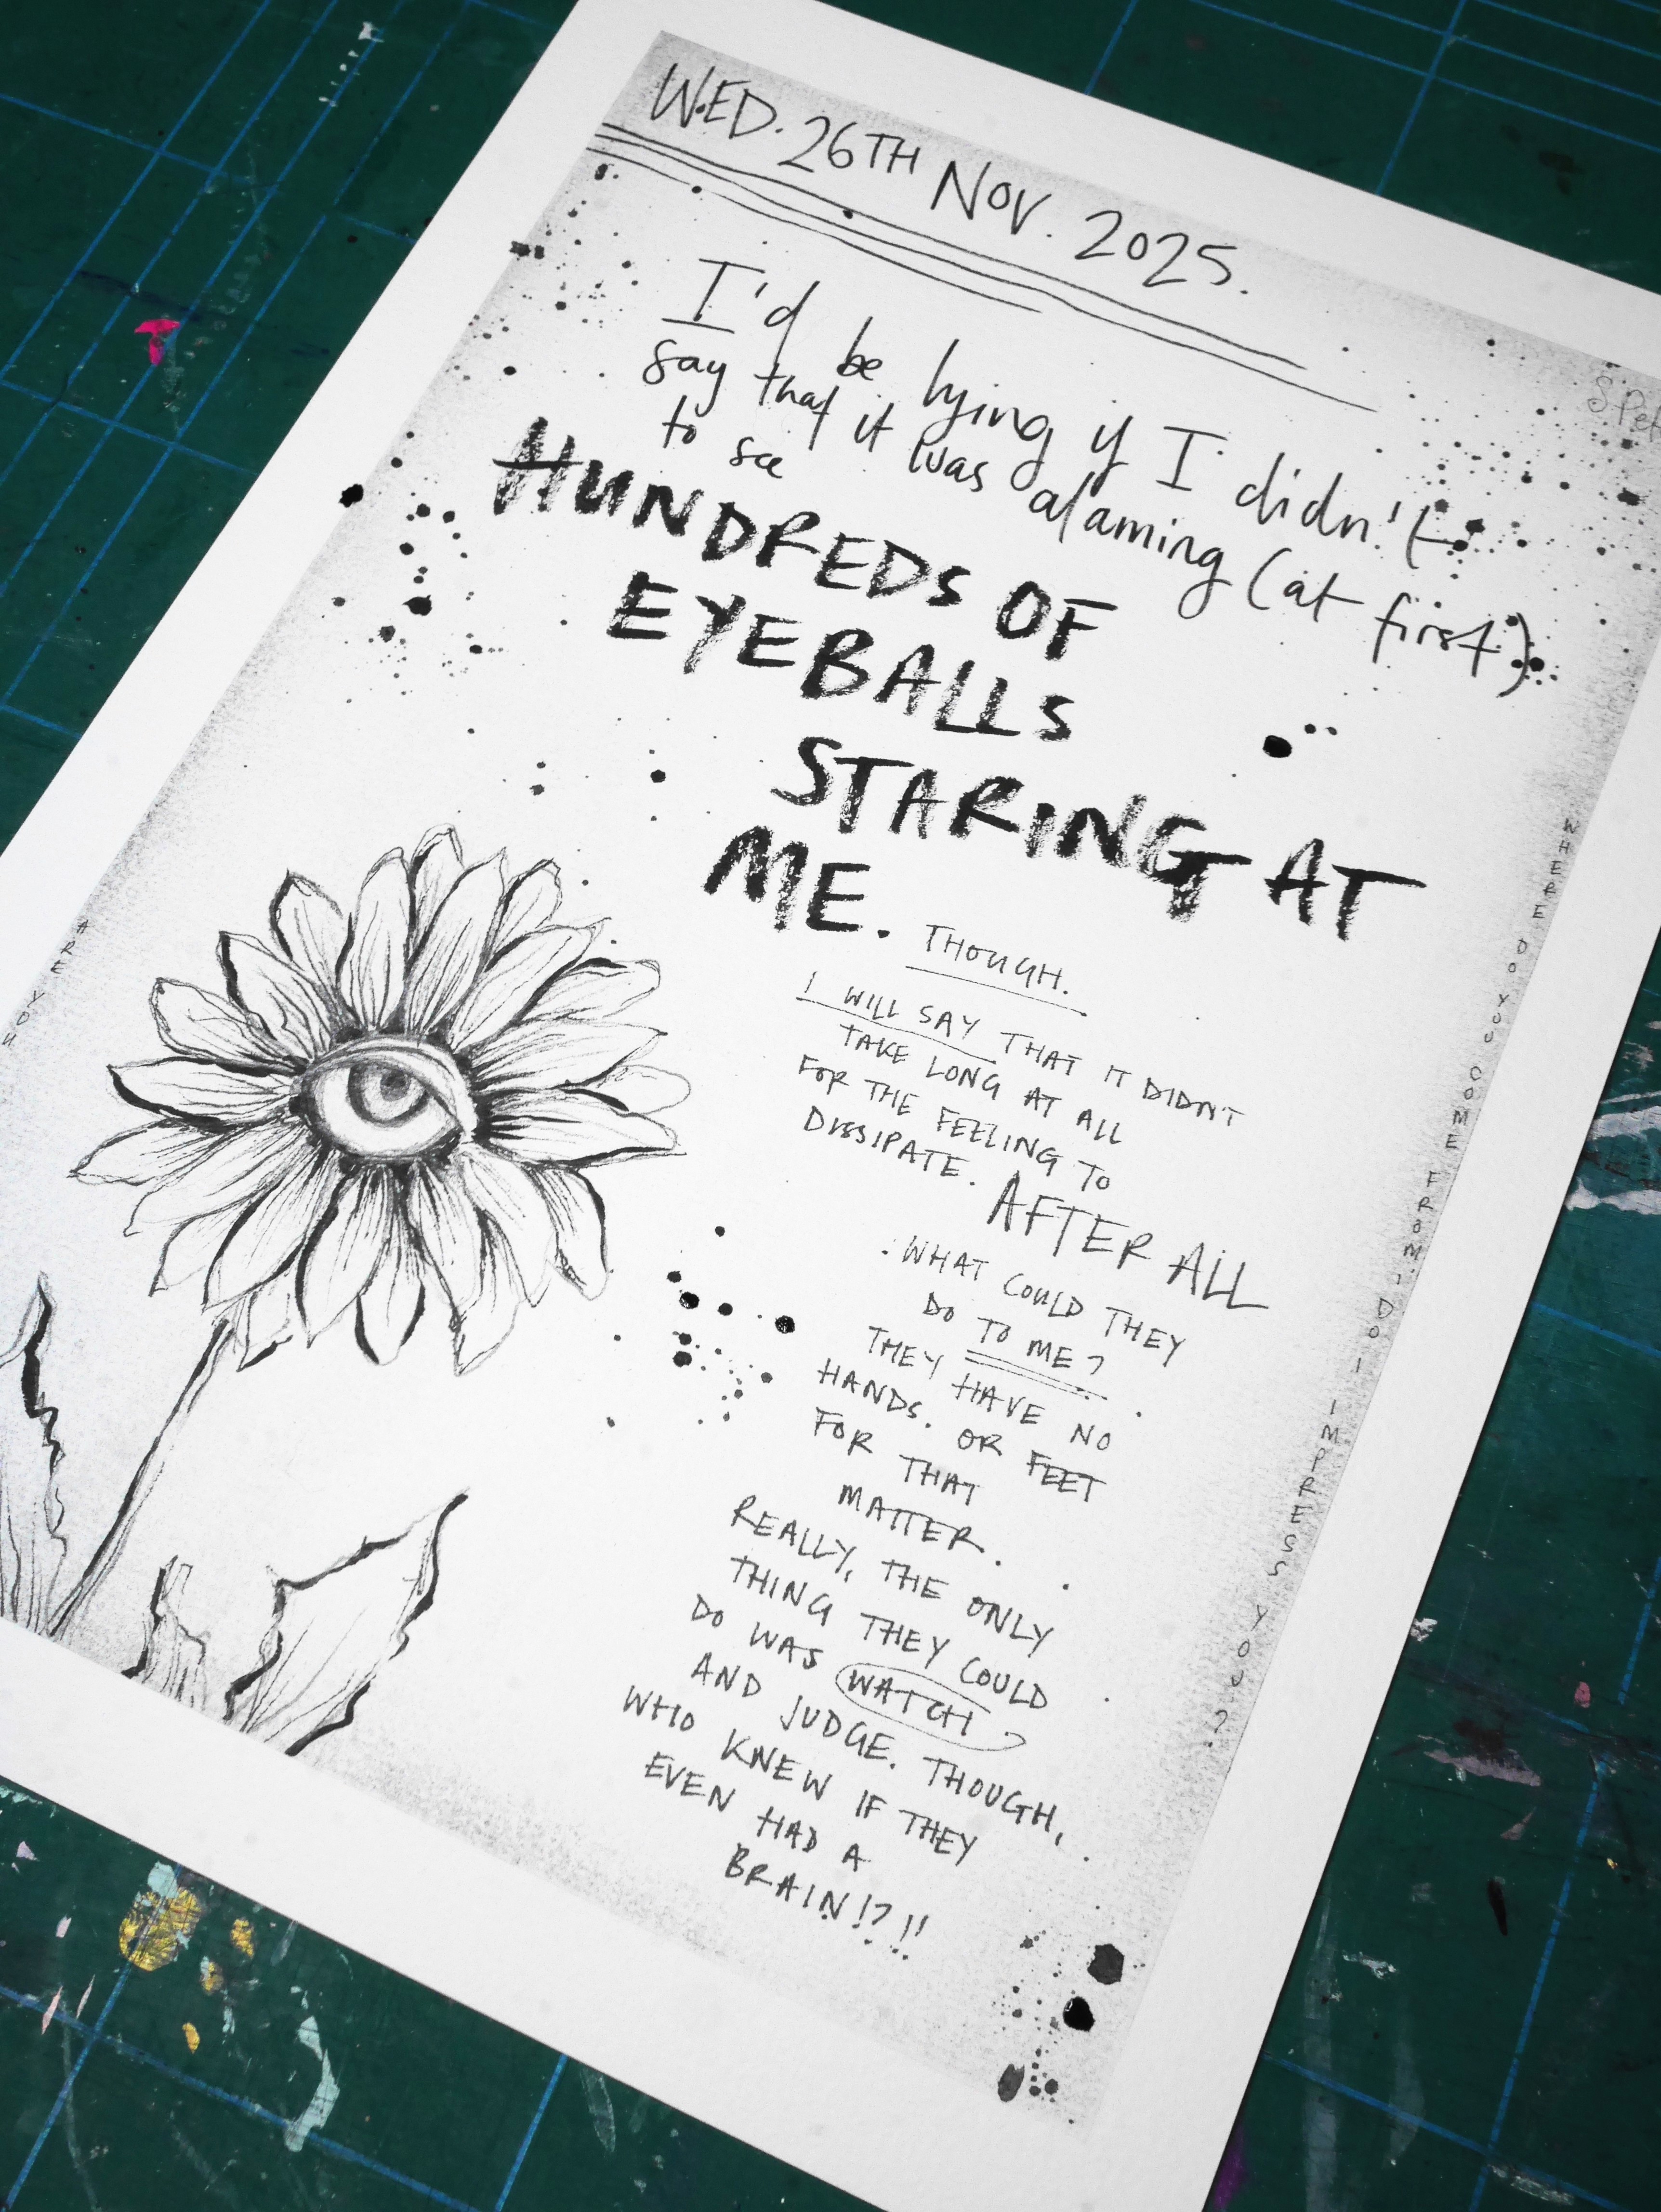 WED. 26TH NOV. 2025.
I'd be lying if I didn't
say that it was alarming (at first)
to see
HUNDREDS OF
EYEBALLS
STARING AT
ME.
THOUGH.
I WILL SAY THAT IT DIDN'T
TAKE LONG AT ALL
FOR THE FEELING TO
DISSIPATE.
AFTER ALL
WHAT COULD THEY
DO TO ME?
THEY HAVE NO
HANDS. OR FEET
FOR THAT
MATTER.
REALLY, THE ONLY
THING THEY COULD
DO WAS WATCH
AND JUDGE. THOUGH,
WHO KNEW IF THEY
EVEN HAD A
BRAIN!?!!
WHERE DO YOU COME FROM? DO I IMPRESS YOU?
ARE YOU